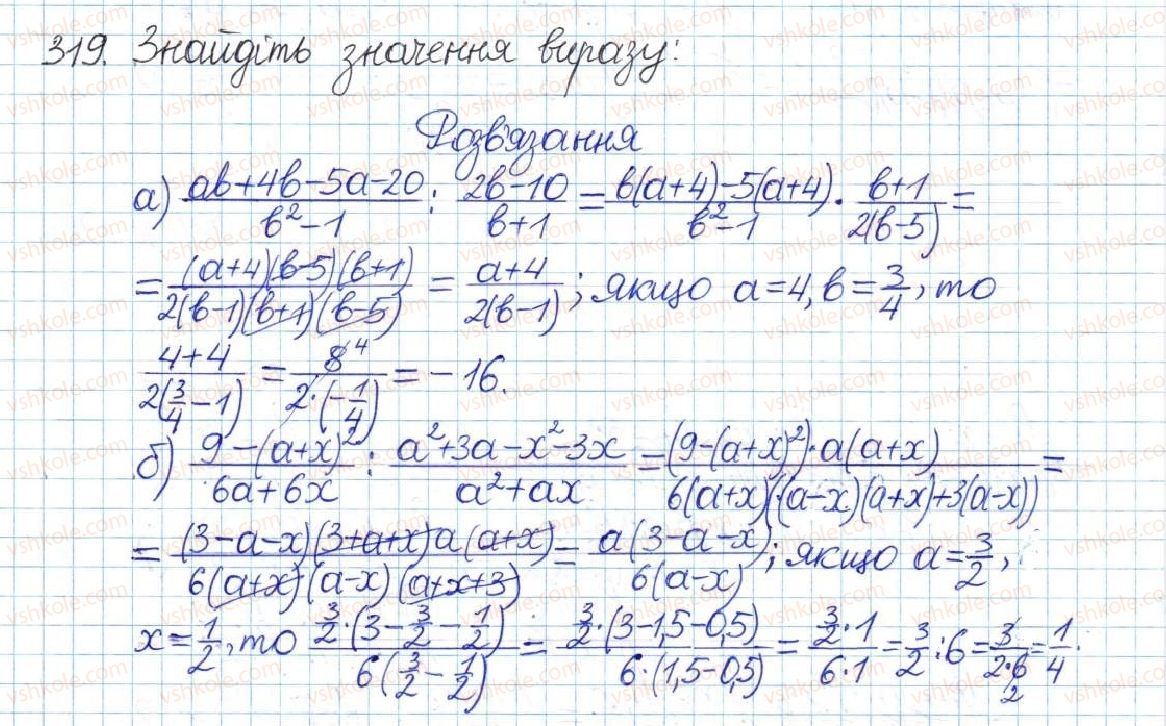 319. Знайдіть значення виразу:
Розв'язання
а) (ab+4b-5a-20)/(b²-1) : (2b-10)/(b+1) = (b(a+4)-5(a+4))/(b²-1) · (b+1)/(2(b-5)) =
= ((a+4)(b-5)(b+1))/(2(b-1)(b+1)(b-5)) = (a+4)/(2(b-1)); якщо a=4, b=3/4, то
(4+4)/(2(3/4-1)) = 8⁴/(2·(-1/4)) = -16.
б) (9-(a+x)²)/(6a+6x) : (a²+3a-x²-3x)/(a²+ax) = ((9-(a+x)²)·a(a+x))/(6(a+x)((a-x)(a+x)+3(a-x))) =
= ((3-a-x)(3+a+x)a(a+x))/(6(a+x)(a-x)(a+x+3)) = (a(3-a-x))/(6(a-x)); якщо a=3/2,
x=1/2, то (3/2·(3-3/2-1/2))/(6(3/2-1/2)) = (3/2·(3-1,5-0,5))/(6·(1,5-0,5)) = (3/2·1)/(6·1) = 3/2:6 = 3/(2·6) = 1/4.